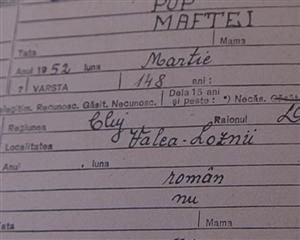 POP
MAFTEI
Tata Mama
Anul 1952 luna Martie
? VARSTA 148 ani:
Dela 15 ani
și peste: *) Necăs.
Legitim. Recunosc. Găsit. Necunosc.
Regiunea Cluj Raionul
Localitatea Valea-Loznii
Anul , luna
român
nu
Tata Mama